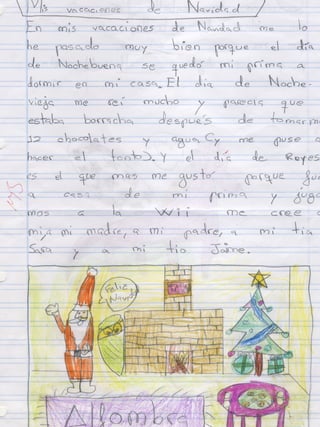 Mis vacaciones de Navidad
En mis vacaciones de Navidad me lo
he pasado muy bien porque el día
de Nochebuena se quedó mi prima a
dormir en mi casa. El día de Noche-
vieja me reí mucho y parecía que
estaba borracha después de tomarme
12 chocolates y agua (y me puse a
hacer el tonto). Y el día de Reyes
es el que más me gustó porque fui
a casa de mi prima y juga
mos a la Wii me cree a
mi, a mi madre, a mi padre, a mi tía
Sara y a mi tío Jaime.
Feliz
Navidad
Alfombra